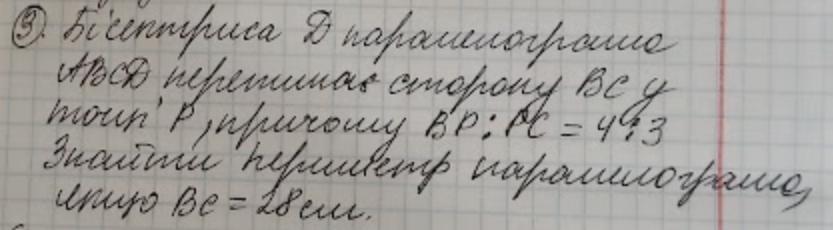 ③. Бісектриса D паралелограма
ABCD перетинає сторону BC у
точці P, причому BP:PC = 4:3
Знайти периметр паралелограма,
якщо BC = 28 см.